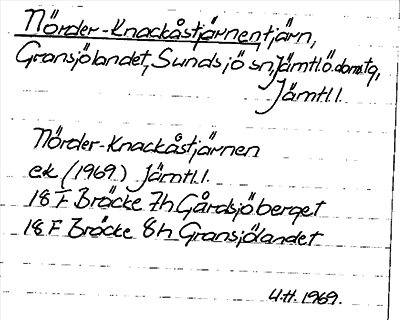 Nörder-Knackåstjärnen, tjärn,
Gransjölandet, Sundsjö sn, Jämtl. Ö. domstg,
Jämtl. l.
Nörder-Knackåstjärnen
ek (1969) Jämtl. l.
18 F Bräcke 7h Gårdsjöberget
18 F Bräcke 8h Gransjölandet
U.H. 1969.